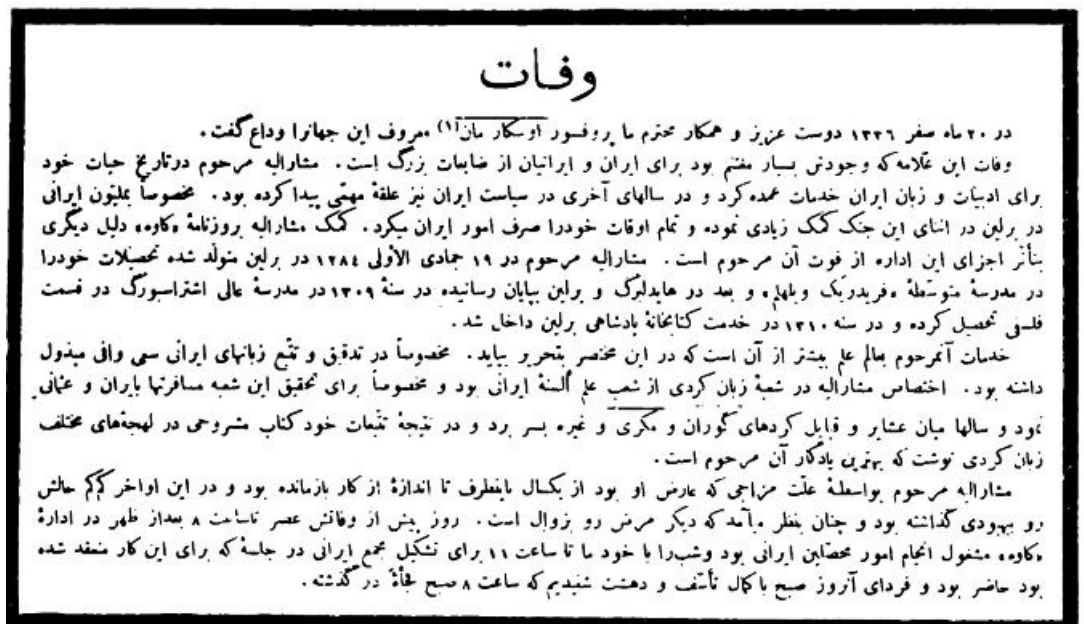 وفات
در ۲۰ ماه صفر ۱۳۳۶ دوست عزیز و همکار محترم ما پروفسور اوسکار مان(۱) معروف این جهانرا وداع گفت.
وفات این علّامه که وجودش بسیار مغتنم بود برای ایران و ایرانیان از ضایعات بزرگ است. مشارالیه مرحوم درتاریخ حیات خود
برای ادبیّات و زبان ایران خدمات عمده کرد و در سالهای آخری در سیاست ایران نیز علقهٔ مهمّی پیدا کرده بود. مخصوصاً بملیّون ایرانی
در برلین در اثنای این جنک کمک زیادی نموده و تمام اوقات خودرا صرف امور ایران میکرد. کمک مشارالیه بروزنامهٔ «کاوه» دلیل دیگری
بتأثر اجزای این اداره از فوت آن مرحوم است. مشارالیه مرحوم در ۱۹ جمادی الأولی ۱۲۸٤ در برلین متولّد شده تحصیلات خودرا
در مدرسهٔ متوسّطهٔ «فریدریک ویلهلم» و بعد در هایدلبرک و برلین بپایان رسانیده در سنهٔ ۱۳۰۹ در مدرسهٔ عالی اشتراسبورگ در قسمت
فلسفی تحصیل کرده و در سنه ۱۳۱۰ در خدمت کتابخانهٔ پادشاهی برلین داخل شد.
خدمات آنمرحوم بعالم علم بیشتر از آن است که در این مختصر بتحریر بیاید. مخصوصاً در تدقیق و تتبّع زبانهای ایرانی سعی وافی مبذول
داشته بود. اختصاص مشارالیه در شعبهٔ زبان کردی از شعب علم ألسنهٔ ایرانی بود و مخصوصاً برای تحقیق این شعبه مسافرتها بایران و عثمانی
نمود و سالها میان عشایر و قبایل کردهای گوران و مکری و غیره بسر برد و در نتیجهٔ تتبّعات خود کتاب مشروحی در لهجه‌های مختلف
زبان کردی نوشت که بهترین یادگار آن مرحوم است.
مشارالیه مرحوم بواسطهٔ علّت مزاجی که عارض او بود از یکسال باینطرف تا اندازهٔ از کار بازمانده بود و در این اواخر کم‌کم حالش
رو ببهودی گذاشته بود و چنان بنظر میآمد که دیگر مرض رو بزوال است. روز پیش از وفاتش عصر تاساعت ۸ بعداز ظهر در ادارهٔ
«کاوه» مشغول انجام امور محصّلین ایرانی بود وشب‌را با خود ما تا ساعت ۱۱ برای تشکیل مجمع ایرانی در جلسهٔ که برای این کار منعقد شده
بود حاضر بود و فردای آنروز صبح با کمال تأسّف و دهشت شنیدیم که ساعت ۸ صبح فجأةً در گذشته.